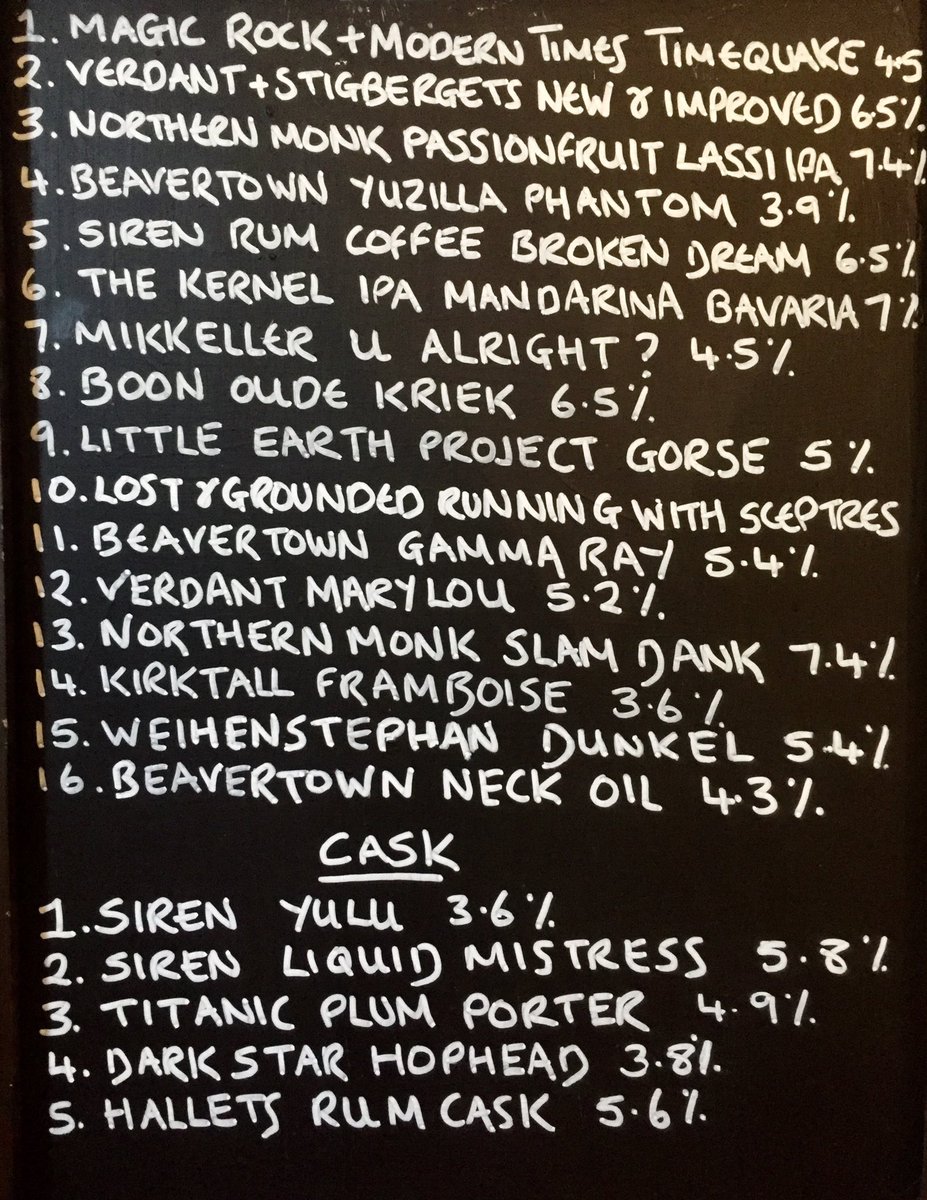 1. MAGIC ROCK + MODERN TIMES TIMEQUAKE 4.5
2. VERDANT + STIGBERGETS NEW & IMPROVED 6.5%
3. NORTHERN MONK PASSIONFRUIT LASSI IPA 7.4%
4. BEAVERTOWN YUZILLA PHANTOM 3.9%
5. SIREN RUM COFFEE BROKEN DREAM 6.5%
6. THE KERNEL IPA MANDARINA BAVARIA 7%
7. MIKKELLER U ALRIGHT? 4.5%
8. BOON OUDE KRIEK 6.5%
9. LITTLE EARTH PROJECT GORSE 5%
10. LOST & GROUNDED RUNNING WITH SCEPTRES
11. BEAVERTOWN GAMMA RAY 5.4%
12. VERDANT MARYLOU 5.2%
13. NORTHERN MONK SLAM DANK 7.4%
14. KIRKTALL FRAMBOISE 3.6%
15. WEIHENSTEPHAN DUNKEL 5.4%
16. BEAVERTOWN NECK OIL 4.3%
CASK
1. SIREN YULU 3.6%
2. SIREN LIQUID MISTRESS 5.8%
3. TITANIC PLUM PORTER 4.9%
4. DARK STAR HOPHEAD 3.8%
5. HALLETS RUM CASK 5.6%